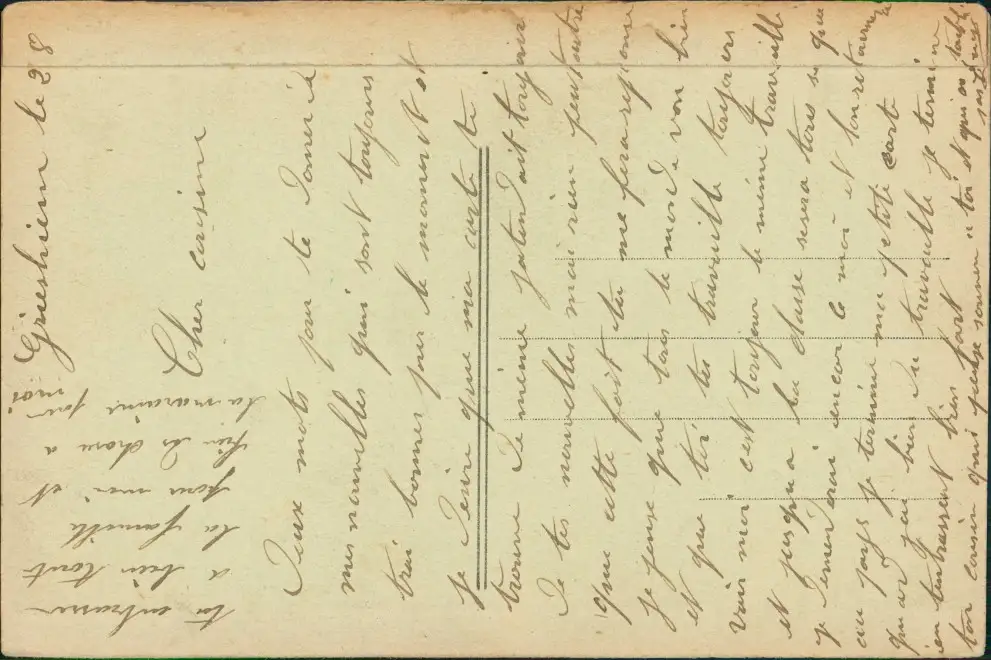 Griesheim le 28
Cher cousin
Deux mots pour te doner de
mes nouvelles qui sont toujours
trai bonnes pour le moment et
je desire que ma carte te
trouve de même jatendait toujours
de tes nouvelles mais rien peut être
que cette foit tu me feras reponse
je pense que tous le monde von bien
et que toi tes travaille toujours
voir moi c'est toujour le même travaille
et jusqu'a la classe sesera tous se que
je demanderai encor le moi et lon retourne
au pays je termine ma petite carte
quar j'ai bien du travaille je termine
en tenbrassent bien fort
ton cousin qui pense souven a toi et qui en
tu enbrassera
a bien tout
la famille
pour moi et
bien de chose a
ta maraine pour
moi